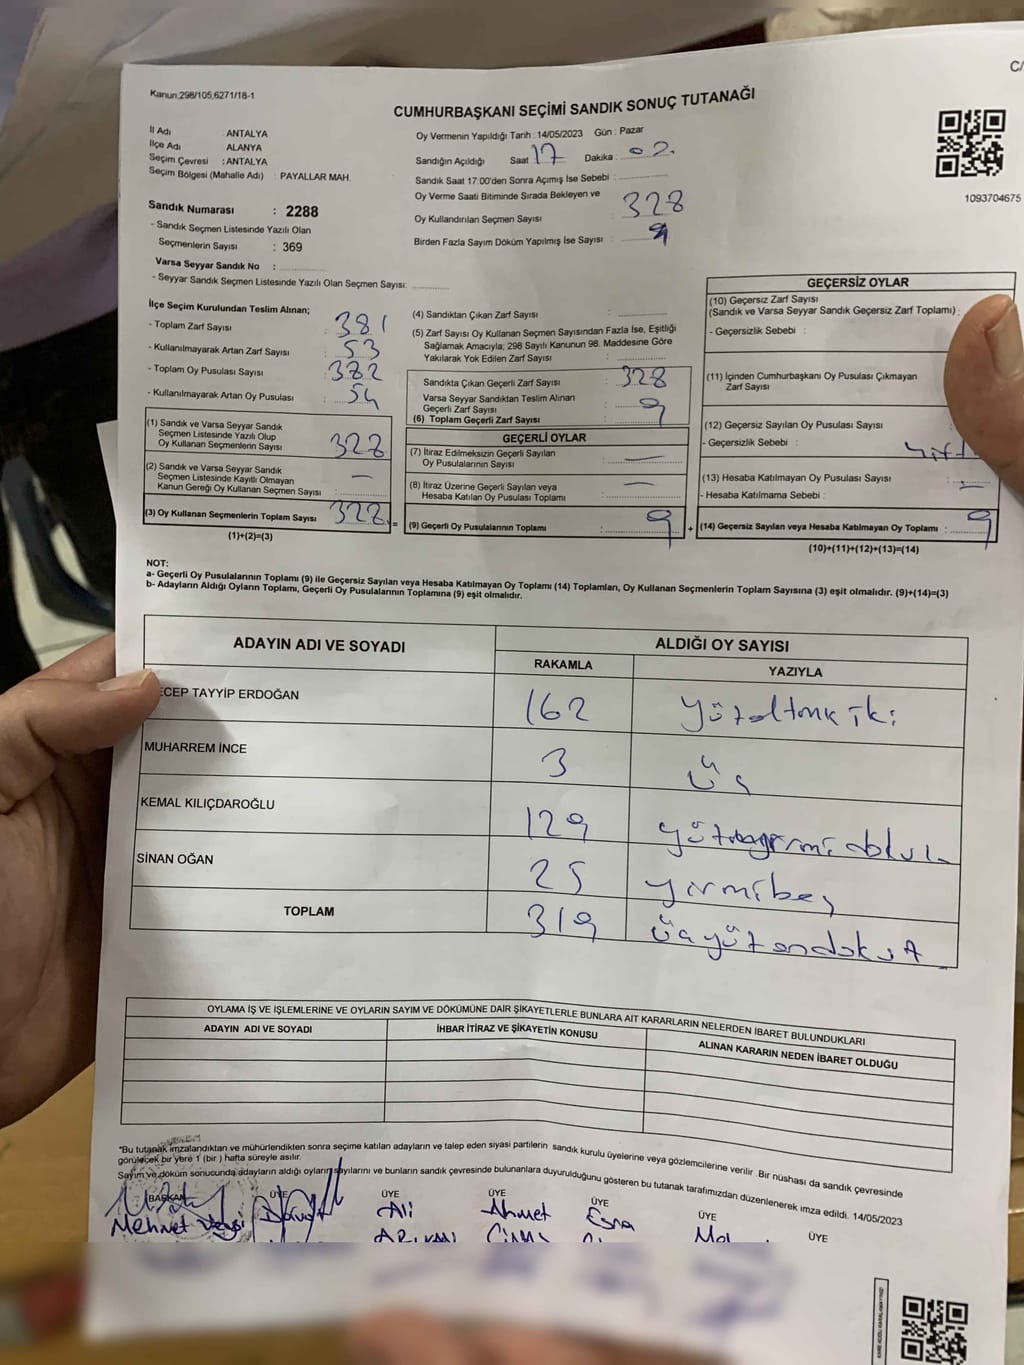 C/
Kanun,298/105,6271/18-1
CUMHURBAŞKANI SEÇİMİ SANDIK SONUÇ TUTANAĞI
İl Adı : ANTALYA
İlçe Adı : ALANYA
Seçim Çevresi : ANTALYA
Seçim Bölgesi (Mahalle Adı) : PAYALLAR MAH.
Oy Vermenin Yapıldığı Tarih : 14/05/2023 Gün : Pazar
Sandığın Açıldığı Saat 17 Dakika : 02.
Sandık Saat 17:00'den Sonra Açımış İse Sebebi :
Oy Verme Saati Bitiminde Sırada Bekleyen ve
Oy Kullandırılan Seçmen Sayısı : 328
Birden Fazla Sayım Döküm Yapılmış İse Sayısı : 9
1093704675
Sandık Numarası : 2288
- Sandık Seçmen Listesinde Yazılı Olan
Seçmenlerin Sayısı : 369
Varsa Seyyar Sandık No :
- Seyyar Sandık Seçmen Listesinde Yazılı Olan Seçmen Sayısı:
İlçe Seçim Kurulundan Teslim Alınan;
- Toplam Zarf Sayısı : 381
- Kullanılmayarak Artan Zarf Sayısı : 53
- Toplam Oy Pusulası Sayısı : 382
- Kullanılmayarak Artan Oy Pusulası : 54
(1) Sandık ve Varsa Seyyar Sandık
Seçmen Listesinde Yazılı Olup
Oy Kullanan Seçmenlerin Sayısı : 328
(2) Sandık ve Varsa Seyyar Sandık
Seçmen Listesinde Kayıtlı Olmayan
Kanun Gereği Oy Kullanan Seçmen Sayısı : —
(3) Oy Kullanan Seçmenlerin Toplam Sayısı 328 =
(1)+(2)=(3)
(4) Sandıktan Çıkan Zarf Sayısı :
(5) Zarf Sayısı Oy Kullanan Seçmen Sayısından Fazla İse, Eşitliği
Sağlamak Amacıyla; 298 Sayılı Kanunun 98. Maddesine Göre
Yakılarak Yok Edilen Zarf Sayısı :
Sandıkta Çıkan Geçerli Zarf Sayısı : 328
Varsa Seyyar Sandıktan Teslim Alınan
Geçerli Zarf Sayısı : 9
(6) Toplam Geçerli Zarf Sayısı :
GEÇERLİ OYLAR
(7) İtiraz Edilmeksizin Geçerli Sayılan
Oy Pusulalarının Sayısı : —
(8) İtiraz Üzerine Geçerli Sayılan veya
Hesaba Katılan Oy Pusulası Toplamı : —
(9) Geçerli Oy Pusulalarının Toplamı : 9 +
GEÇERSİZ OYLAR
(10) Geçersiz Zarf Sayısı
(Sandık ve Varsa Seyyar Sandık Geçersiz Zarf Toplamı) :
- Geçersizlik Sebebi :
(11) İçinden Cumhurbaşkanı Oy Pusulası Çıkmayan
Zarf Sayısı
(12) Geçersiz Sayılan Oy Pusulası Sayısı
- Geçersizlik Sebebi :
(13) Hesaba Katılmayan Oy Pusulası Sayısı : —
- Hesaba Katılmama Sebebi :
(14) Geçersiz Sayılan veya Hesaba Katılmayan Oy Toplamı : 9
(10)+(11)+(12)+(13)=(14)
NOT:
a- Geçerli Oy Pusulalarının Toplamı (9) ile Geçersiz Sayılan veya Hesaba Katılmayan Oy Toplamı (14) Toplamları, Oy Kullanan Seçmenlerin Toplam Sayısına (3) eşit olmalıdır. (9)+(14)=(3)
b- Adayların Aldığı Oyların Toplamı, Geçerli Oy Pusulalarının Toplamına (9) eşit olmalıdır.
ADAYIN ADI VE SOYADI ALDIĞI OY SAYISI
RAKAMLA YAZIYLA
ECEP TAYYİP ERDOĞAN 162 yüzaltmıkiki
MUHARREM İNCE 3 üç
KEMAL KILIÇDAROĞLU 129
SİNAN OĞAN 25 yirmibeş
TOPLAM 319 üçyüzondokuz
OYLAMA İŞ VE İŞLEMLERİNE VE OYLARIN SAYIM VE DÖKÜMÜNE DAİR ŞİKAYETLERLE BUNLARA AİT KARARLARIN NELERDEN İBARET BULUNDUKLARI
ADAYIN ADI VE SOYADI İHBAR İTİRAZ VE ŞİKAYETİN KONUSU ALINAN KARARIN NEDEN İBARET OLDUĞU
*Bu tutanak imzalandıktan ve mühürlendikten sonra seçime katılan adayların ve talep eden siyasi partilerin sandık kurulu üyelerine veya gözlemcilerine verilir .Bir nüshası da sandık çevresinde
görülecek bir yere 1 (bir ) hafta süreyle asılır.
Sayım ve döküm sonucunda adayların aldığı oyların sayılarını ve bunların sandık çevresinde bulunanlara duyurulduğunu gösteren bu tutanak tarafımızdan düzenlenerek imza edildi. 14/05/2023
BAŞKAN ÜYE ÜYE ÜYE ÜYE ÜYE ÜYE
Mehmet Veysi Davut Ali Ahmet Esra